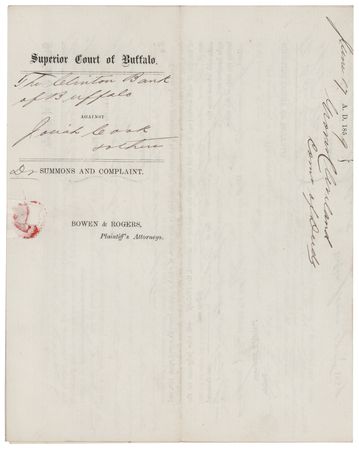 Superior Court of Buffalo.
The Clinton Bank
of Buffalo
AGAINST
Josiah Cook
& others
SUMMONS AND COMPLAINT.
BOWEN & ROGERS,
Plaintiff's Attorneys.
June 17 A. D. 1859
Grover Cleveland
Com of Deeds